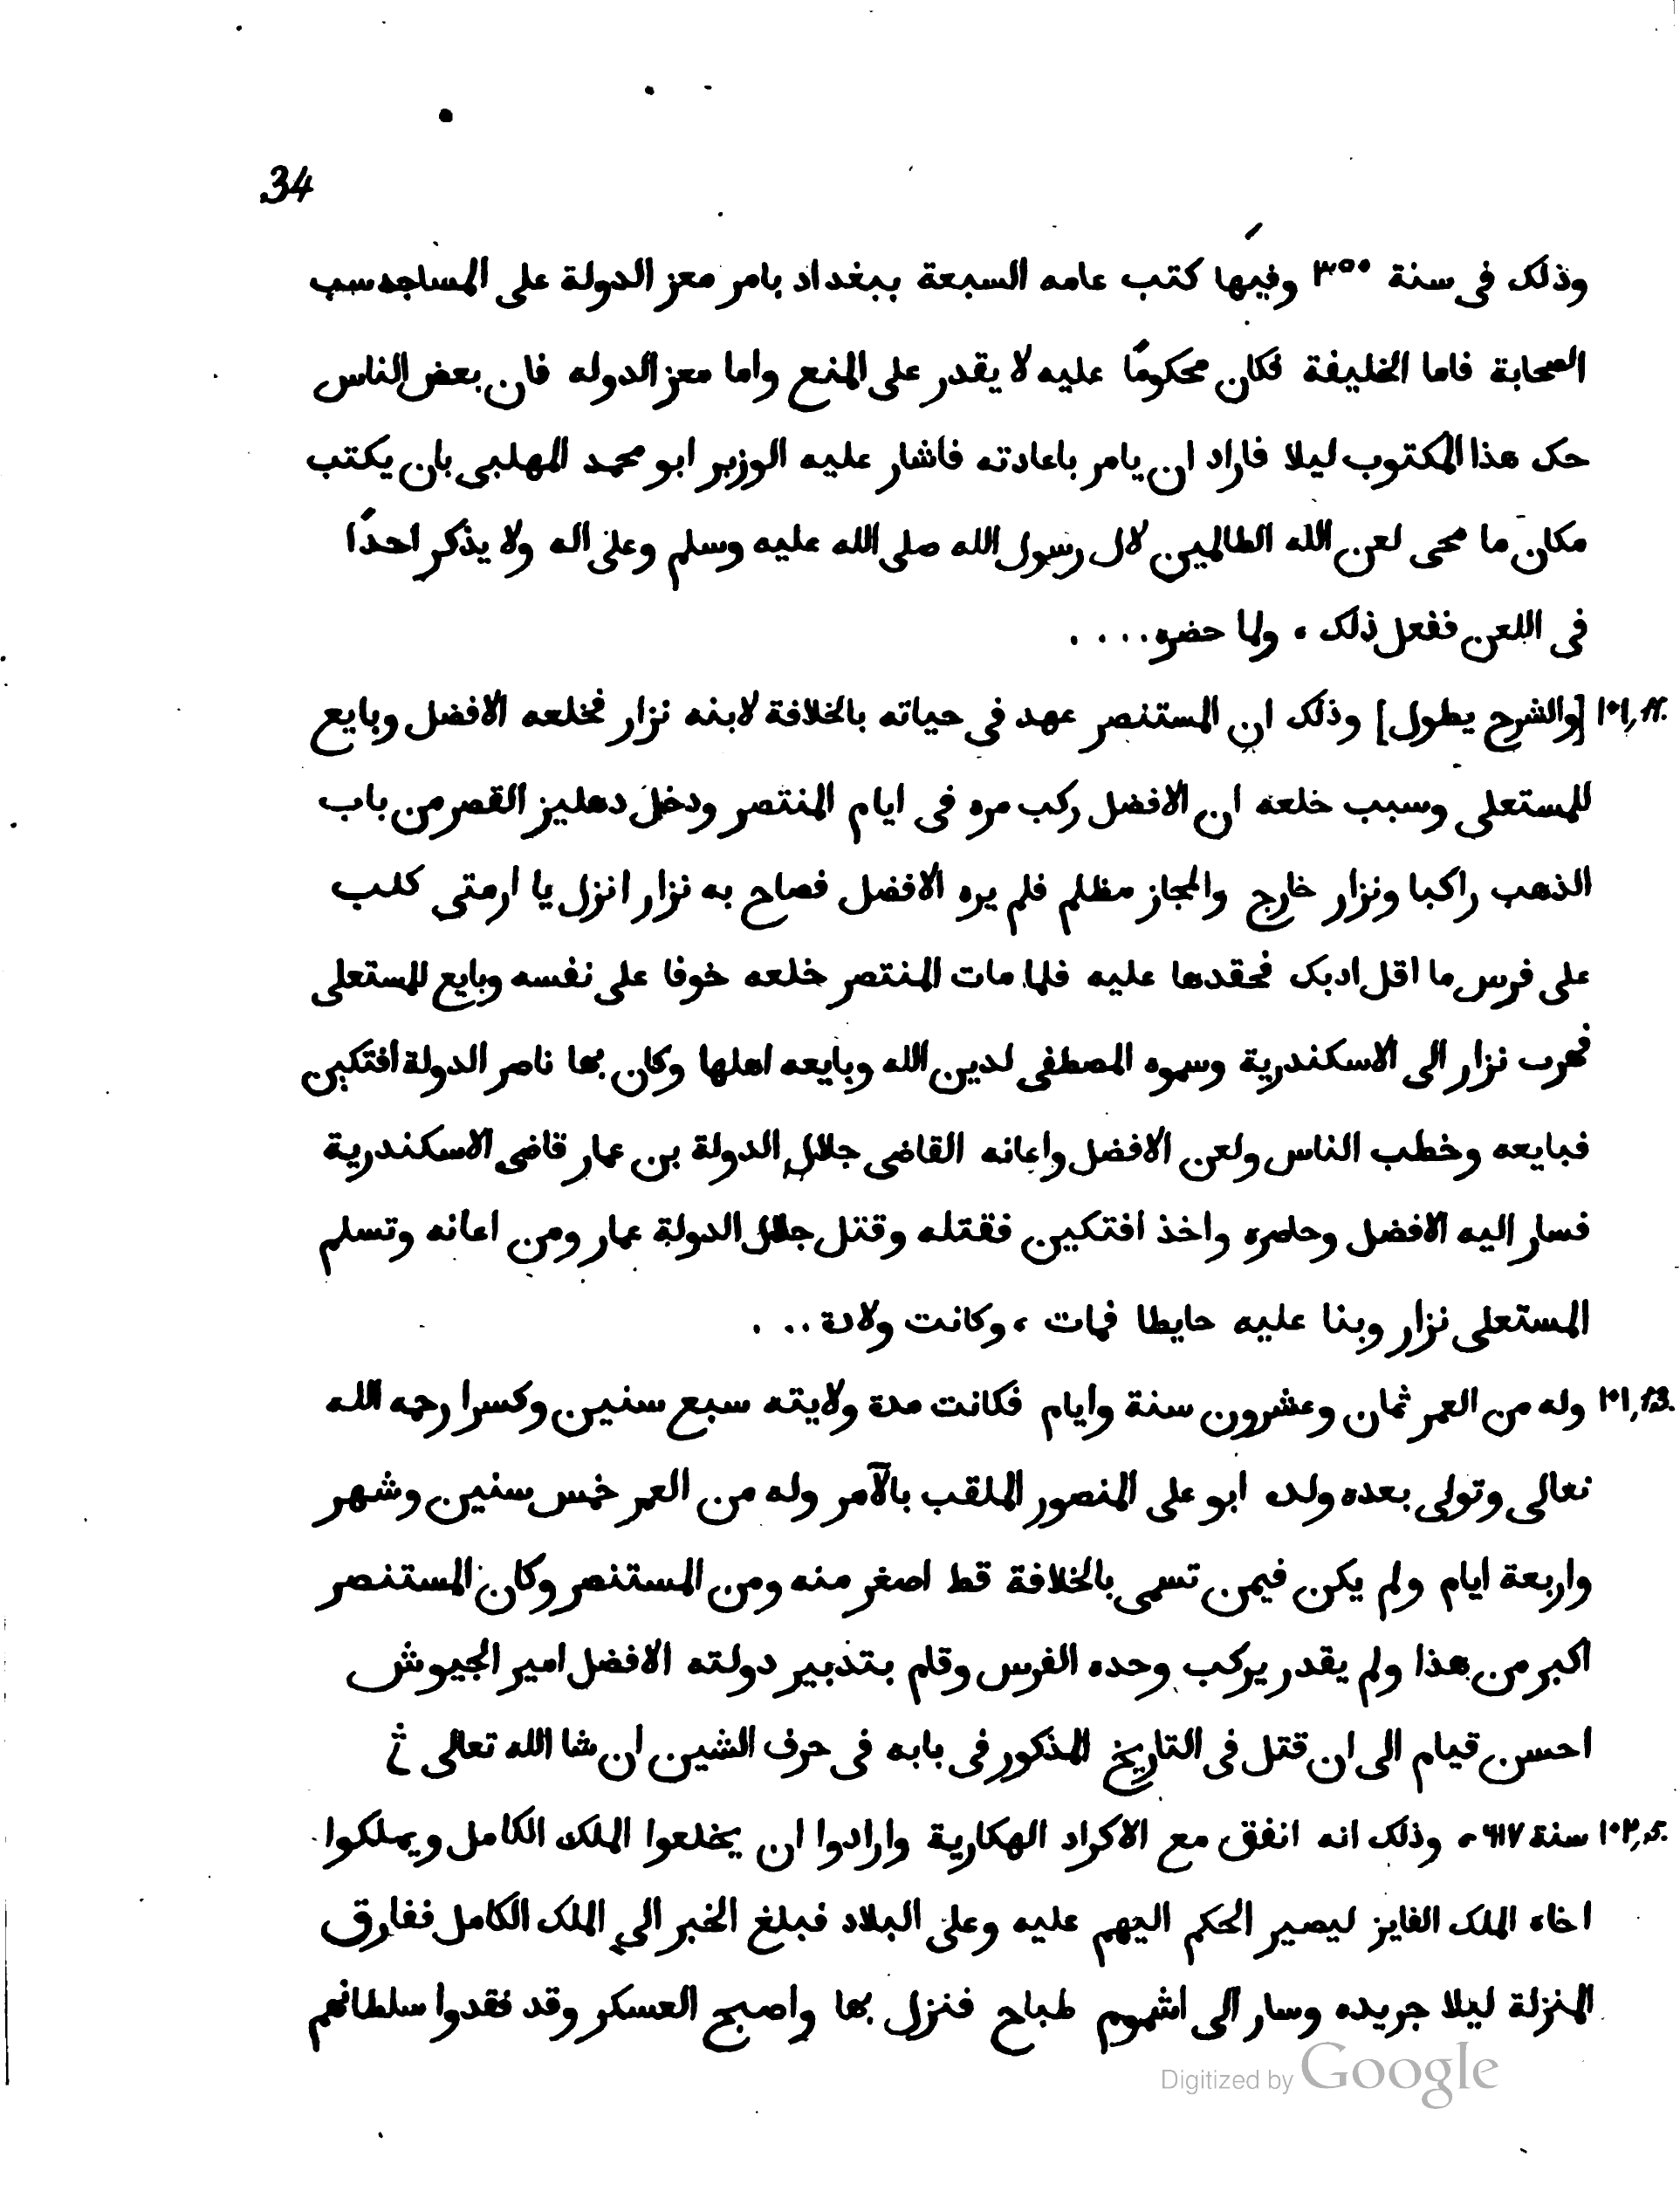 34
وذلك فى سنة ٣٥٠ وفيها كتب عامه السبعة ببغداد بامر معز الدولة على المساجد سب
الصحابة فاما الخليفة فكان محكومًا عليه لا يقدر على المنع واما معز الدوله فان بعض الناس
حك هذا المكتوب ليلا فاراد ان يامر باعادته فاشار عليه الوزير ابو محمد المهلبى بان يكتب
مكان ما محى لعن الله الطالمين لال رسول الله صلى الله عليه وسلم وعلى اله ولا يذكر احدًا
فى اللعن ففعل ذلك ، ولما حضره ....
١٠١,١٢. [والشرح يطول] وذلك ان المستنصر عهد فى حياته بالخلافة لابنه نزار فخلعه الافضل وبايع
للمستعلى وسبب خلعه ان الافضل ركب مره فى ايام المنتصر ودخل دهليز القصر من باب
الذهب راكبا ونزار خارج والمجاز مظلم فلم يره الافضل فصاح به نزار انزل يا ارمتى كلب
على فرس ما اقل ادبك فحقدها عليه فلما مات المنتصر خلعه خوفا على نفسه وبايع للمستعلى
فهرب نزار الى الاسكندرية وسموه المصطفى لدين الله وبايعه اهلها وكان بها ناصر الدولة افتكين
فبايعه وخطب الناس ولعن الافضل واعانه القاضى جلال الدولة بن عمار قاضى الاسكندرية
فسار اليه الافضل وحاصره واخذ افتكين فقتله وقتل جلال الدولة عمار ومن اعانه وتسلم
المستعلى نزار وبنا عليه حايطا فمات ، وكانت ولادة ...
١٠١,١3. وله من العمر ثمان وعشرون سنة وايام فكانت مدة ولايته سبع سنين وكسرا رحمه الله
تعالى وتولى بعده ولده ابو على المنصور الملقب بالآمر وله من العمر خمس سنين وشهر
واربعة ايام ولم يكن فيمن تسمى بالخلافة قط اصغر منه ومن المستنصر وكان المستنصر
اكبر من هذا ولم يقدر يركب وحده الفرس وقام بتدبير دولته الافضل امير الجيوش
احسن قيام الى ان قتل فى التاريخ المذكور فى بابه فى حرف الشين ان شا الله تعالى
١٠٢,5. سنة ٦١٧ ، وذلك انه اتفق مع الاكراد الهكارية وارادوا ان يخلعوا الملك الكامل ويملكوا
اخاه الملك الفايز ليصير الحكم اليهم عليه وعلى البلاد فبلغ الخبر الى الملك الكامل ففارق
المنزلة ليلا جريده وسار الى اشموم طباح فنزل بها واصبح العسكر وقد فقدوا سلطانهم
Digitized by Google